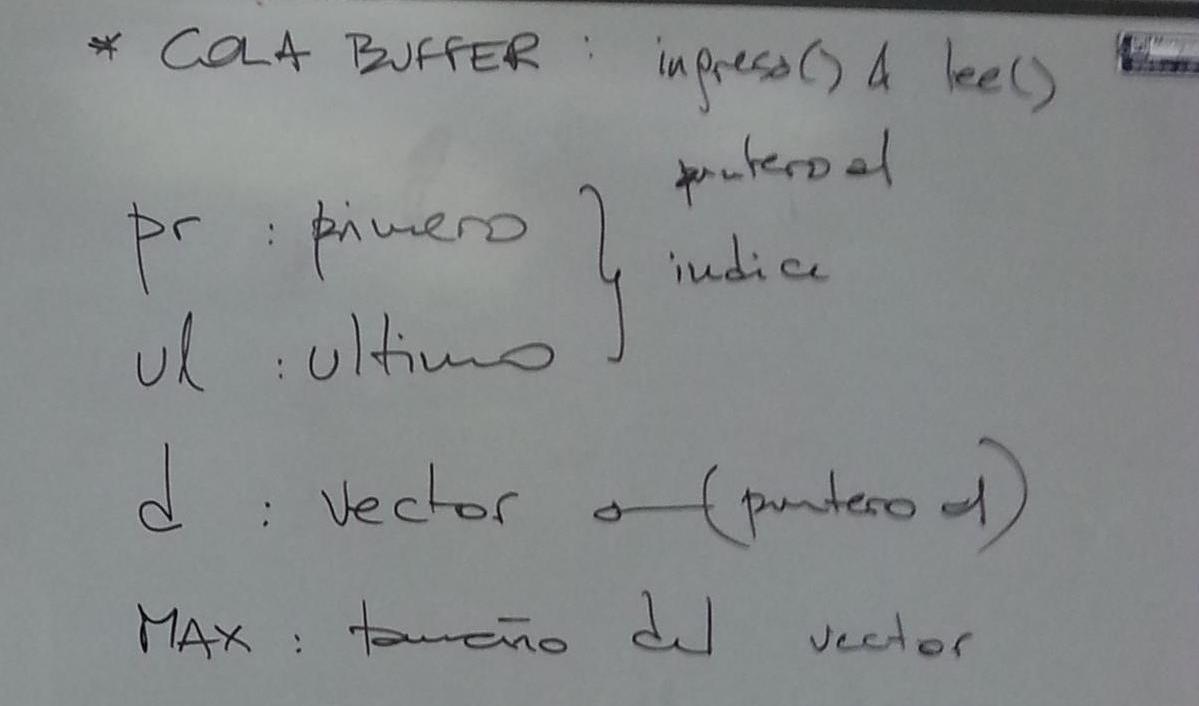 * COLA BUFFER : ingreso() & lee()
pr : primero } puntero al
ul : ultimo } indice
d : vector (puntero al)
MAX : tamaño del vector